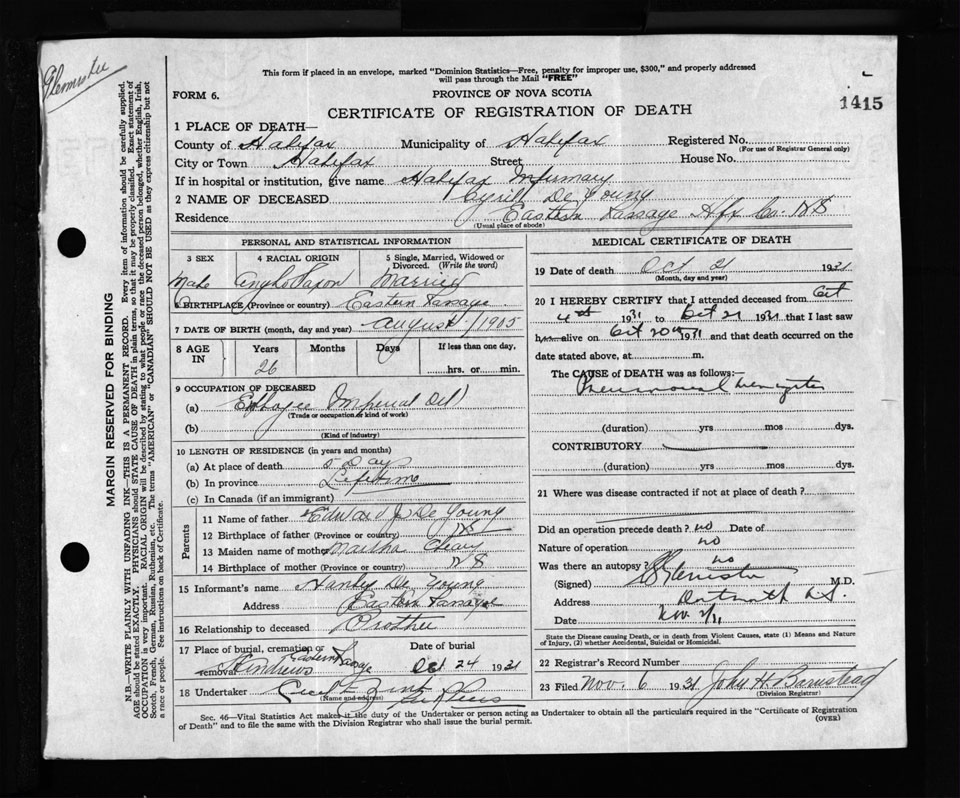 This form if placed in an envelope, marked "Dominion Statistics—Free, penalty for improper use, $300," and properly addressed
will pass through the Mail "FREE"
FORM 6.
PROVINCE OF NOVA SCOTIA
1415
CERTIFICATE OF REGISTRATION OF DEATH
1 PLACE OF DEATH—
County of Halifax Municipality of Halifax Registered No.
(For use of Registrar General only)
City or Town Halifax Street House No.
If in hospital or institution, give name Halifax Infirmary
2 NAME OF DECEASED Cyrill De Young
Residence Eastern Passage Hfx Co. N S
(Usual place of abode)
PERSONAL AND STATISTICAL INFORMATION
3 SEX 4 RACIAL ORIGIN 5 Single, Married, Widowed or
Divorced. (Write the word)
Male Anglo Saxon Married
6 BIRTHPLACE (Province or country) Eastern Passage
7 DATE OF BIRTH (month, day and year) August 1905
8 AGE IN Years Months Days If less than one day,
26 hrs. or min.
9 OCCUPATION OF DECEASED
(a) Imperial Oil
(Trade or occupation or kind of work)
(b)
(Kind of industry)
10 LENGTH OF RESIDENCE (in years and months)
(a) At place of death Day
(b) In province Lifetime
(c) In Canada (if an immigrant)
Parents
11 Name of father Edward J De Young
12 Birthplace of father (Province or country) NS
13 Maiden name of mother Martha
14 Birthplace of mother (Province or country) N S
15 Informant's name De Young
Address Eastern Passage
16 Relationship to deceased Brother
17 Place of burial, cremation or removal Date of burial
St Andrews Eastern Passage Oct 24 1931
18 Undertaker Zink
(Name and address)
MEDICAL CERTIFICATE OF DEATH
19 Date of death Oct 21 1931
(Month, day and year)
20 I HEREBY CERTIFY that I attended deceased from Oct
4th 1931 to Oct 21 1931 that I last saw
h alive on Oct 20th 1931 and that death occurred on the
date stated above, at m.
The CAUSE of DEATH was as follows:—
Pneumococcal meningitis
(duration) yrs mos dys.
CONTRIBUTORY
(duration) yrs mos dys.
21 Where was disease contracted if not at place of death?
Did an operation precede death? no Date of
Nature of operation no
Was there an autopsy? no
(Signed) M.D.
Address Dartmouth N.S.
Date Nov 2/31
State the Disease causing Death, or in death from Violent Causes, state (1) Means and Nature
of Injury, (2) whether Accidental, Suicidal or Homicidal.
22 Registrar's Record Number
23 Filed Nov. 6 1931 John H Barnstead
(Division Registrar)
Sec. 46—Vital Statistics Act makes it the duty of the Undertaker or person acting as Undertaker to obtain all the particulars required in the "Certificate of Registration
of Death" and to file the same with the Division Registrar who shall issue the burial permit.
(OVER)
MARGIN RESERVED FOR BINDING
N.B.—WRITE PLAINLY WITH UNFADING INK—THIS IS A PERMANENT RECORD. Every item of information should be carefully supplied.
AGE should be stated EXACTLY. PHYSICIANS should STATE CAUSE OF DEATH in plain terms, so that it may be properly classified. Exact statement of
OCCUPATION is very important. RACIAL ORIGIN will be described by stating to what people or race the deceased person belonged, whether English, Irish,
Scotch, French, German, Russian, Ruthenian, etc. The terms "AMERICAN" or "CANADIAN" SHOULD NOT BE USED as they express citizenship but not
a race or people. See instructions on back of Certificate.